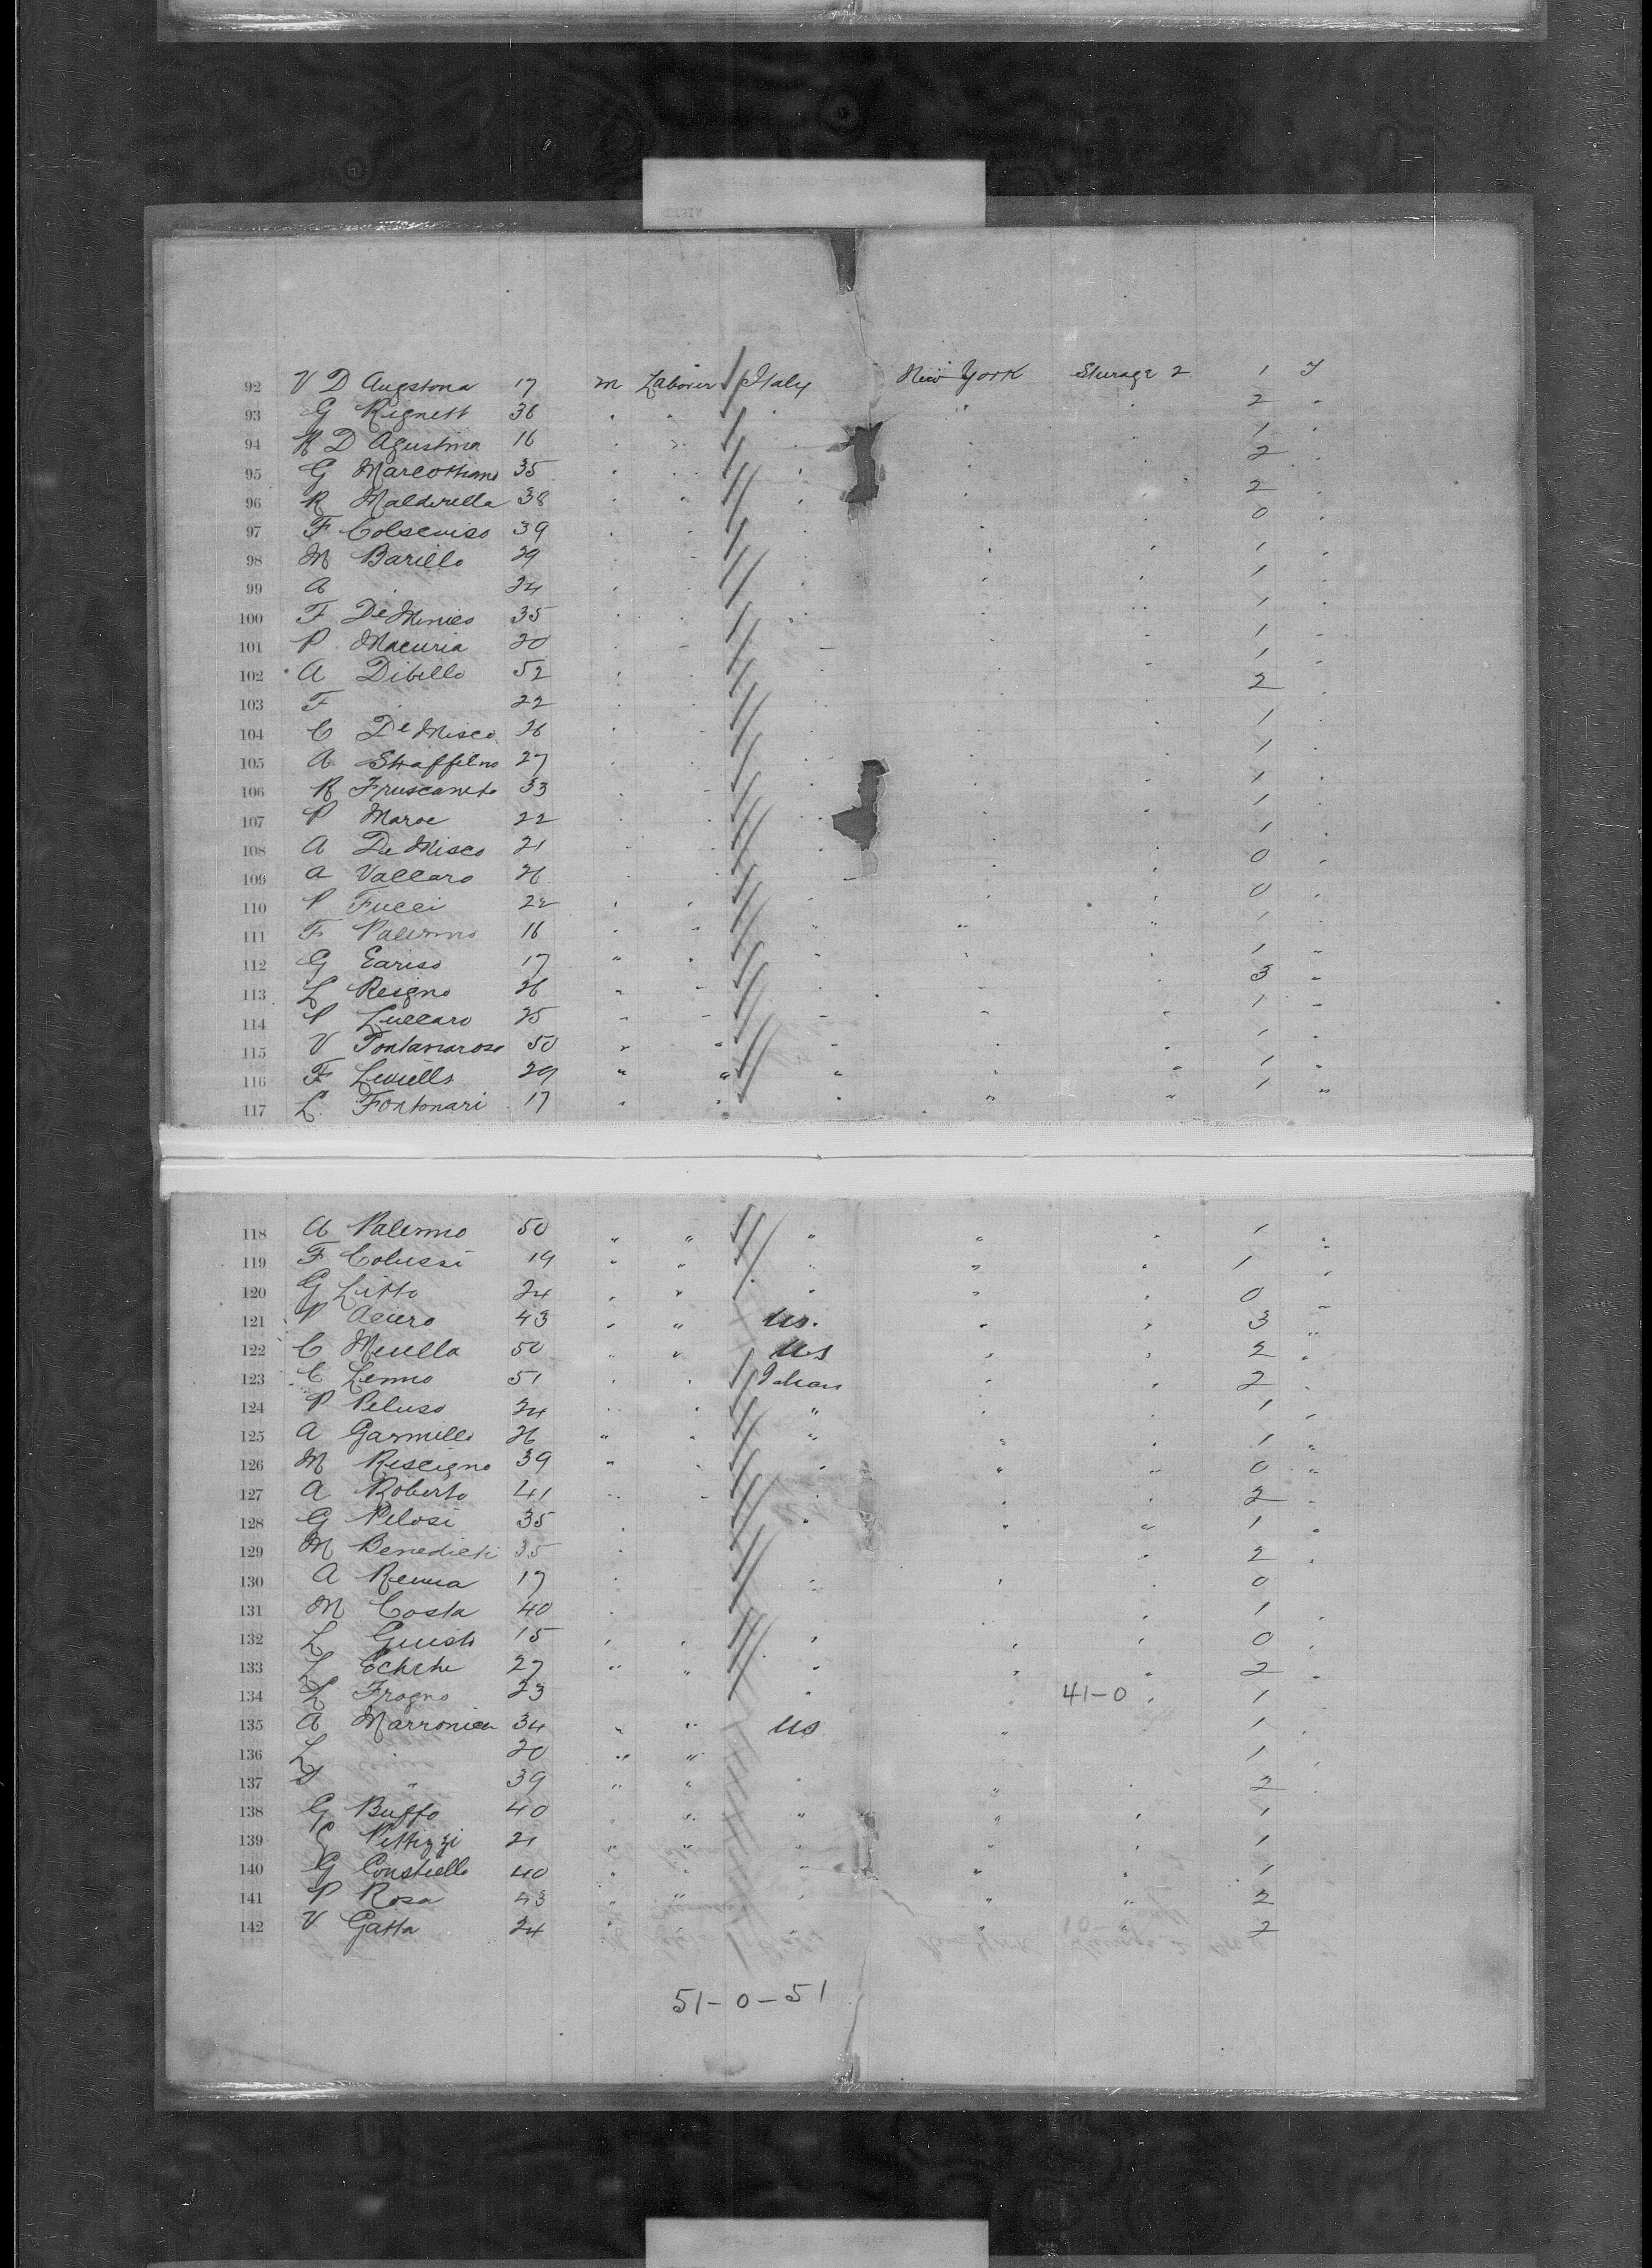 92 V D Augstona 17 m Laborer Italy New York Sterage 2 1 T
93 G Rignett 36 " " " " " 2 "
94 R D Agustina 16 " " " " " 1 "
95 G Marcottiano 35 " " " " " 2 "
96 R Malderella 38 " " " " " 2 "
97 F 39 " " " " " 0 "
98 M Barillo 29 " " " " " 1 "
99 A " 24 " " " " " 1 "
100 F De Minico 35 " " " " " 1 "
101 P Macuria 20 " " " " " 1 "
102 A Dibello 52 " " " " " 1 "
103 F " 22 " " " " " 2 "
104 C De Misco 26 " " " " " 1 "
105 A Staffilno 27 " " " " " 1 "
106 R Fruscaneto 33 " " " " " 1 "
107 P Maroe 22 " " " " " 1 "
108 A De Misco 21 " " " " " 1 "
109 A Vallaro 26 " " " " " 0 "
110 P Fucci 22 " " " " " 0 "
111 F Palermo 16 " " " " " 1 "
112 G Eariso 17 " " " " " 1 "
113 L Reigno 26 " " " " " 3 "
114 P Luccaro 25 " " " " " 1 "
115 V Fontanaroso 50 " " " " " 1 "
116 F Liviells 29 " " " " " 1 "
117 L Fontonari 17 " " " " " 1 "
118 A Palermo 50 " " " " " 1 "
119 F Colussi 19 " " " " " 1 "
120 G Litto 24 " " " " " 0 "
121 P Aciero 43 " " US. " " 3 "
122 C Miella 50 " " US " " 2 "
123 C Lemmo 51 " " " " 2 "
124 P Peluso 24 " " " " " 1 "
125 A Garmillo 26 " " " " " 1 "
126 M Riscigno 39 " " " " " 0 "
127 A Roberto 41 " " " " " 2 "
128 G Pelosi 35 " " " " " 1 "
129 M Benedicti 35 " " " " " 2 "
130 A Renna 17 " " " " " 0
131 M Costa 40 " " " " " 1 "
132 L Guisto 15 " " " " " 0 "
133 L 27 " " " " " 2 "
134 L Frogno 23 " " 41-0 " 1
135 A Marronica 34 " " US " 1 "
136 L " 20 " " 1 "
137 " 39 " " " " " 2 "
138 G Buffo 40 " " " " " 1
139 Pittizzi 21 " " " " 1
140 G Constiello 40 " " " " " 1
141 P Rosa 43 " " " " " 2
142 V Gatta 24 " " " " " 2
51-0-51